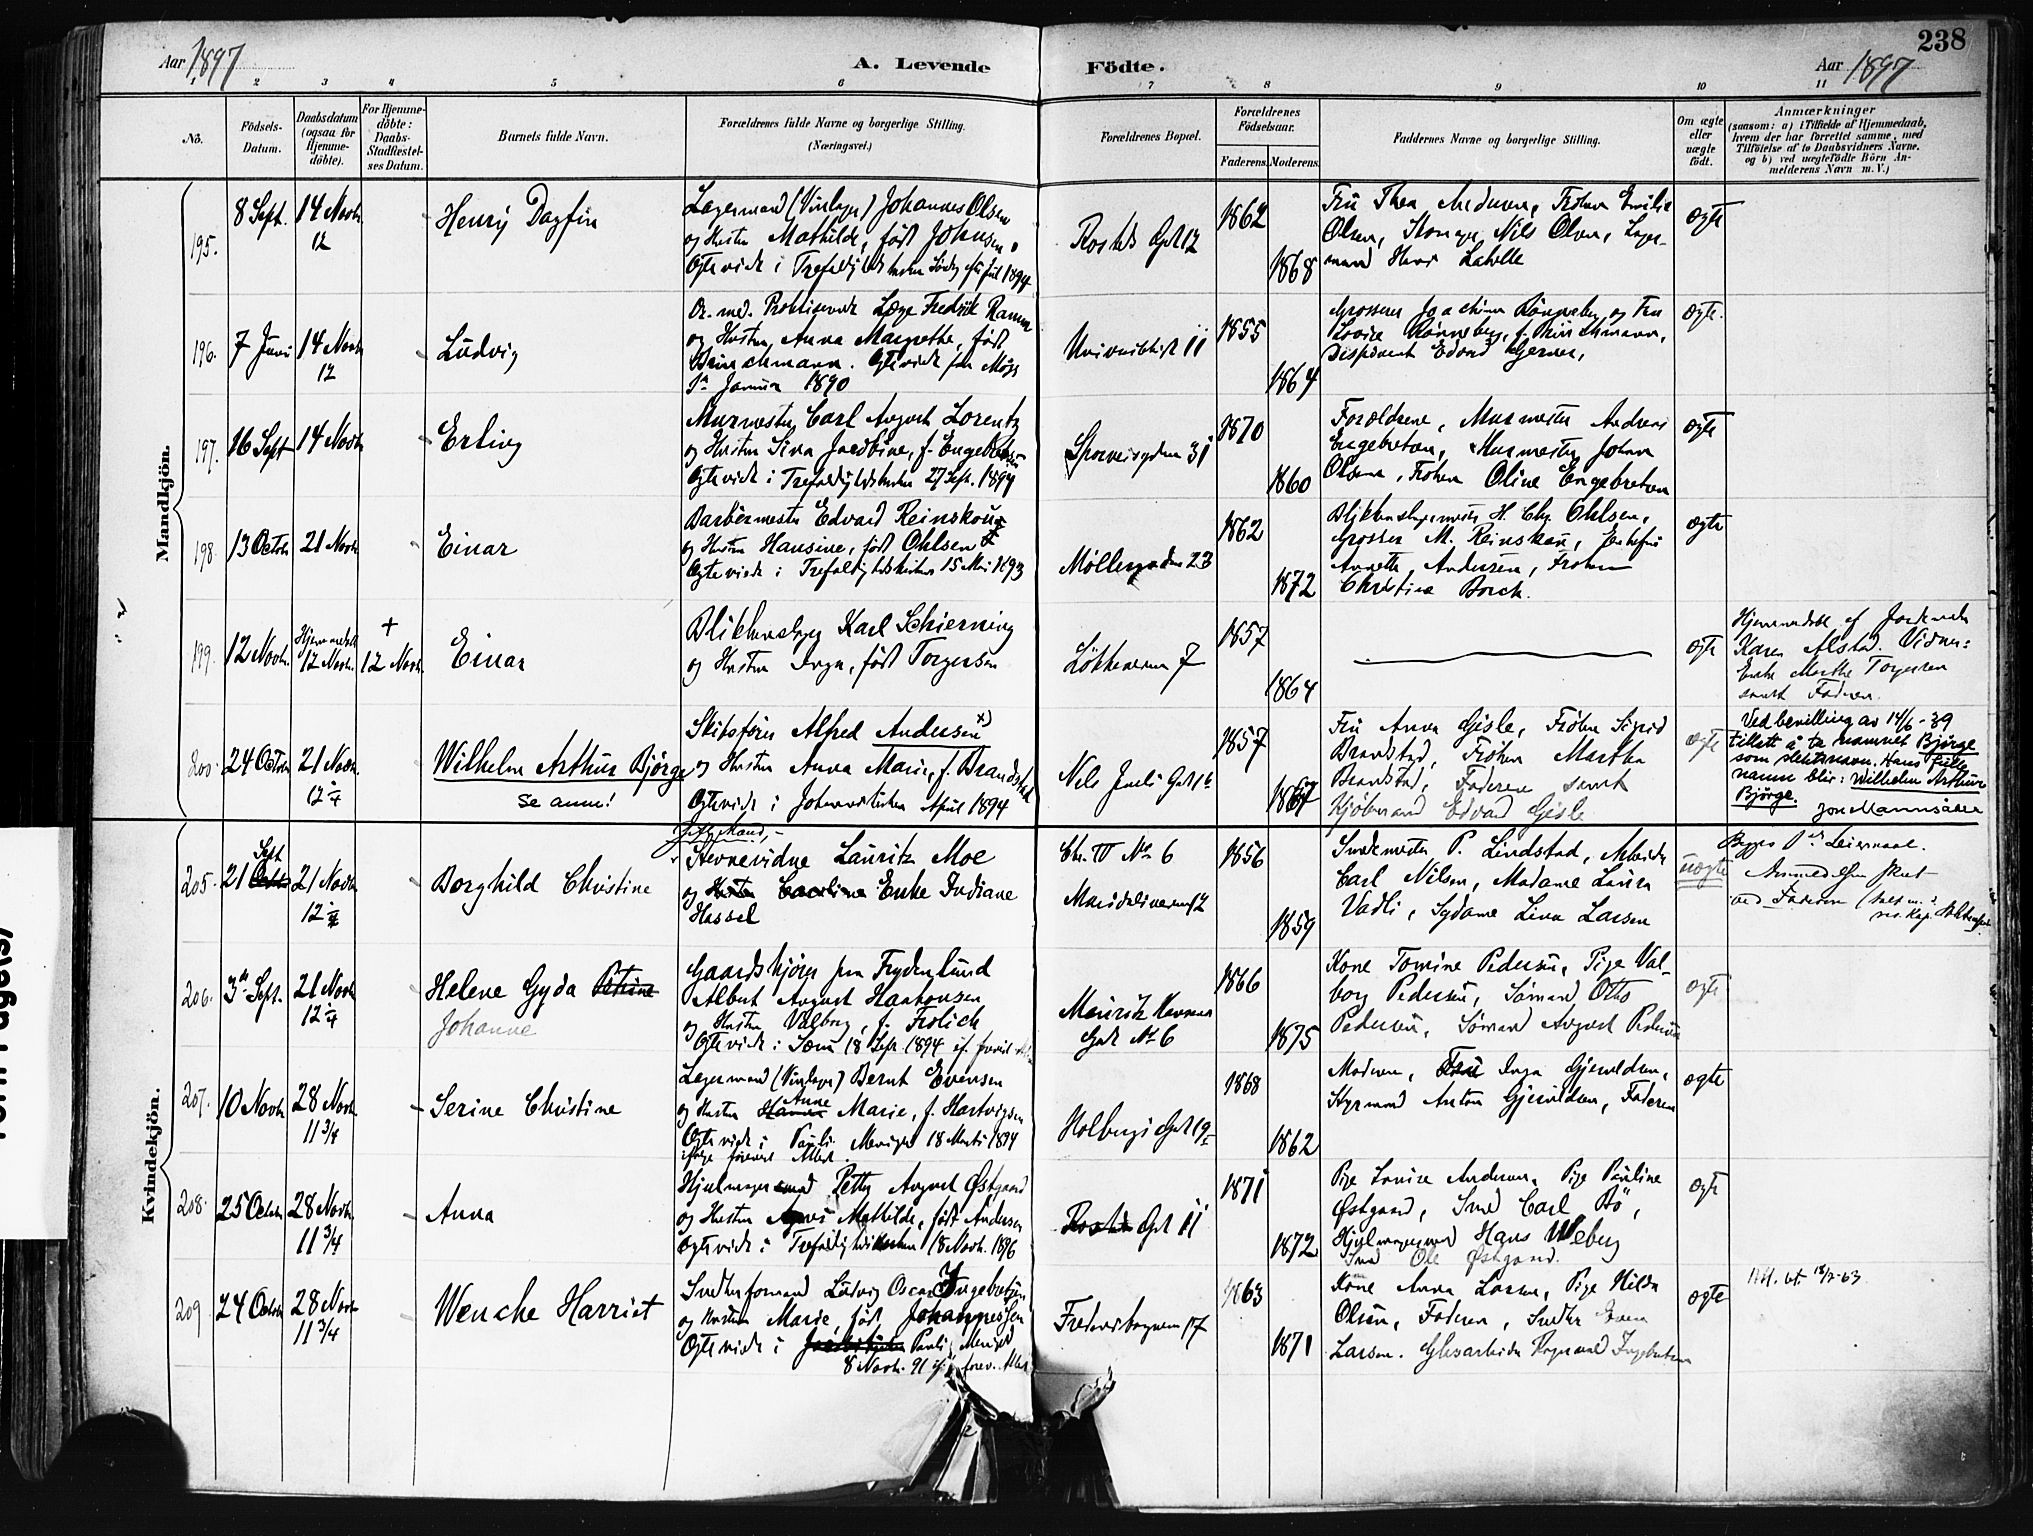 238
Aar 1897
A. Levende Födte.
Aar 1897
1 2 3 4 5 6 7 8 9 10 11
No.
Födsels-Datum.
Daabsdatum (ogsaa for Hjemme-döbte).
For Hjemme-döbte: Daabs-Stadfæstel-ses Datum.
Barnets fulde Navn.
Forældrenes fulde Navne og borgerlige Stilling.
(Næringsvei.)
Forældrenes Bopæl.
Forældrenes Födselsaar.
Faderens. Moderens.
Faddernes Navne og borgerlige Stilling.
Om ægte eller uægte födt.
Anmærkninger
(saasom: a) i Tilfælde af Hjemmedaab,
hvem der har forrettet samme, med
Tilföielse af to Daabsvidners Navne.
og b) ved uægtefödte Börn An-
melderens Navn m. V.)
Mandkjön.
195. 8 Sept. 14 Novb. 12
Henry Dagfin
Lagermand (Vinlager) Johannes Olsen
og Hustru Mathilde, født Johnsen.
Ægteviede i Trefoldighedskirken 1894
Rosteds Gd 12
1862
1868
Fru Thea Andersen, Frøken Emilie
Olsen, Nils Olsen, Lager-
mand
ægte
196. 7 Juni 14 Novb 12
Ludvig
Dr. med. Praktiserende Læge Fredrik Ramm
og Hustru, Anna Margrethe, født
Brinchmann. Ægteviede paa Moss
Januar 1890
Universitetsgd 11
1855
1864
Grosserer Joachim Rønneberg og Fru
Lovise Rønneberg, f. Brinchmann,
Disponent Edvard Gjerner,
ægte.
197. 16 Sept 14 Novb
Erling
Murmester Carl August Lorentz
og Hustru Sina Jacobine, f. Engebretsen
Ægteviede i Trefoldighedskirken 27 Sept. 1894
Sporveisgaden 31
1870
1860
Forældrene, Murmester Andreas
Engebretsen, Murmester Johan
Olsen, Frøken Oline Engebretsen
ægte
198. 13 Octob 21 Novb
Einar
Barbermester Edvard Reinskou
og Hustru Hansine, født Ohlsen
Ægteviede i Trefoldighedskirken 15 Mai 1893
Møllergaden 23
1862
1872
Blikkenslagermester H. Chr. Ohlsen,
Grosser M. Reinskou,
Annette Andersen, Frøken
Christine Borch.
ægte
199. 12 Novb. Hjemmedøbt 12 Novb. + 12 Novb.
Einar
Blikkenslager Karl Schierning
og Hustru Inga, født Torgersen
Løkkeveien 7
1857
1864
ægte
Hjemmedøbt af Jordemoder
Karen Alstad. Vidner:
Enke Marthe Torgersen
samt Faderen.
200. 24 Octob 21 Novb. 12
Wilhelm Arthur Bjørge
se anm!
Skibsfører Alfred Andersen x)
og Hustru Anna Marie, f. Brandstad
Ægteviede i Johanneskirken April 1894
Nels Juels Gd 16
1857
1867
Fru Anna Gisle, Frøken Sigrid
Brandstad, Frøken Martha
Brandstad, Faderen samt
Kjøbmand Edvard Gisle
ægte
Ved bevilling av 14/6-39
tillatt å ta navnet Bjørge
som slektsnavn. Hans fulle
navn blir: Wilhelm Arthur
Bjørge.
Jon Mannsåker
Kvindekjön.
205. 21 Sept 21 Novb 12
Borghild Christine
gift Mand,
Stevnevidne Lauritz Moe
og Hustru Caroline Enke Indiane
Hassel
Chr. IV No 6
Maridalsveien 12
1856
1859
Smedmester P. Lindstad, Arbeider
Carl Nilsen, Madame Laura
Vadli, Sydame Lina Larsen
uægte
Begges 1ste Leiermaal.
Anmeldelsen skeet
ved Faderen
206. 3die Sept. 21 Novb 12
Helene Gyda Petrine
Johanne
Gaardskjører paa Frydenlund
Albert August Haakonsen
og Hustru Valborg, f. Frølich
Ægteviede i Sæm 18 Sept 1894
Mauritz Hansens
Gade No 6
1866
1875
Kone Tomine Pedersen, Pige Val-
borg Pedersen, Sømand Otto
Pedersen, Sømand August Pedersen
ægte
207. 10 Novb. 28 Novb 11 3/4
Serine Christine
Lagermand (Vinlager) Bernt Evensen
og Hustru Hanna Anne Marie, f. Hartvigsen
Ægteviede i Pauli Menighed 18 Marts 1894
ifølge foreviist Attest.
Holbergs Gd 19
1868
1862
Moderen, Fru Inga Gjeruldsen,
Styrmand Anton Gjeruldsen, Faderen
ægte
208. 25 Octob 28 Novb. 11 3/4
Anna
Hjulmager Petter August Østgaard
og Hustru Agnes Mathilde, født Andersen
Ægteviede i Trefoldighedskirken 18 Novb. 1896
Rosteds Gd 11
1871
1872
Pige Lovise Andersen, Pige Pauline
Østgaard, Smed Carl Bö,
Hjulmagersvend Hans Weberg
Smed Ole Østgaard.
ægte
209. 24 Octob 28 Novb 11 3/4
Wenche Harriet
Snedkerformand Ludvig Oscar Ingebretsen
og Hustru Marie, født Johannessen
Ægteviede i Jakobskirken Pauli Menighed
8 Novb. 91 if. forev. Attest
Fredensborgveien 17
1863
1871
Kone Anna Larsen, Pige Hilda
Olsen, Faderen, Snedker Even
Larsen. Glasarbeider Ragnvald Ingebretsen
ægte
Att. ut. 18/2-63